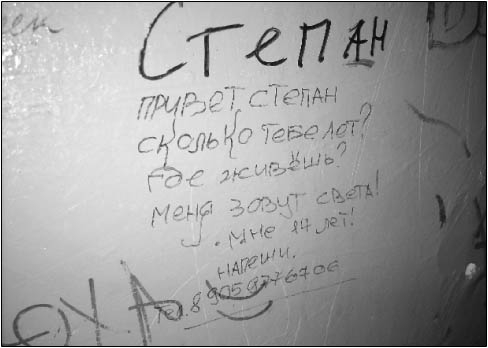 Степан
привет, степан
сколько тебе лет?
где живёшь?
меня зовут света!
мне 17 лет!
напеши.
тел. 8 9059776706